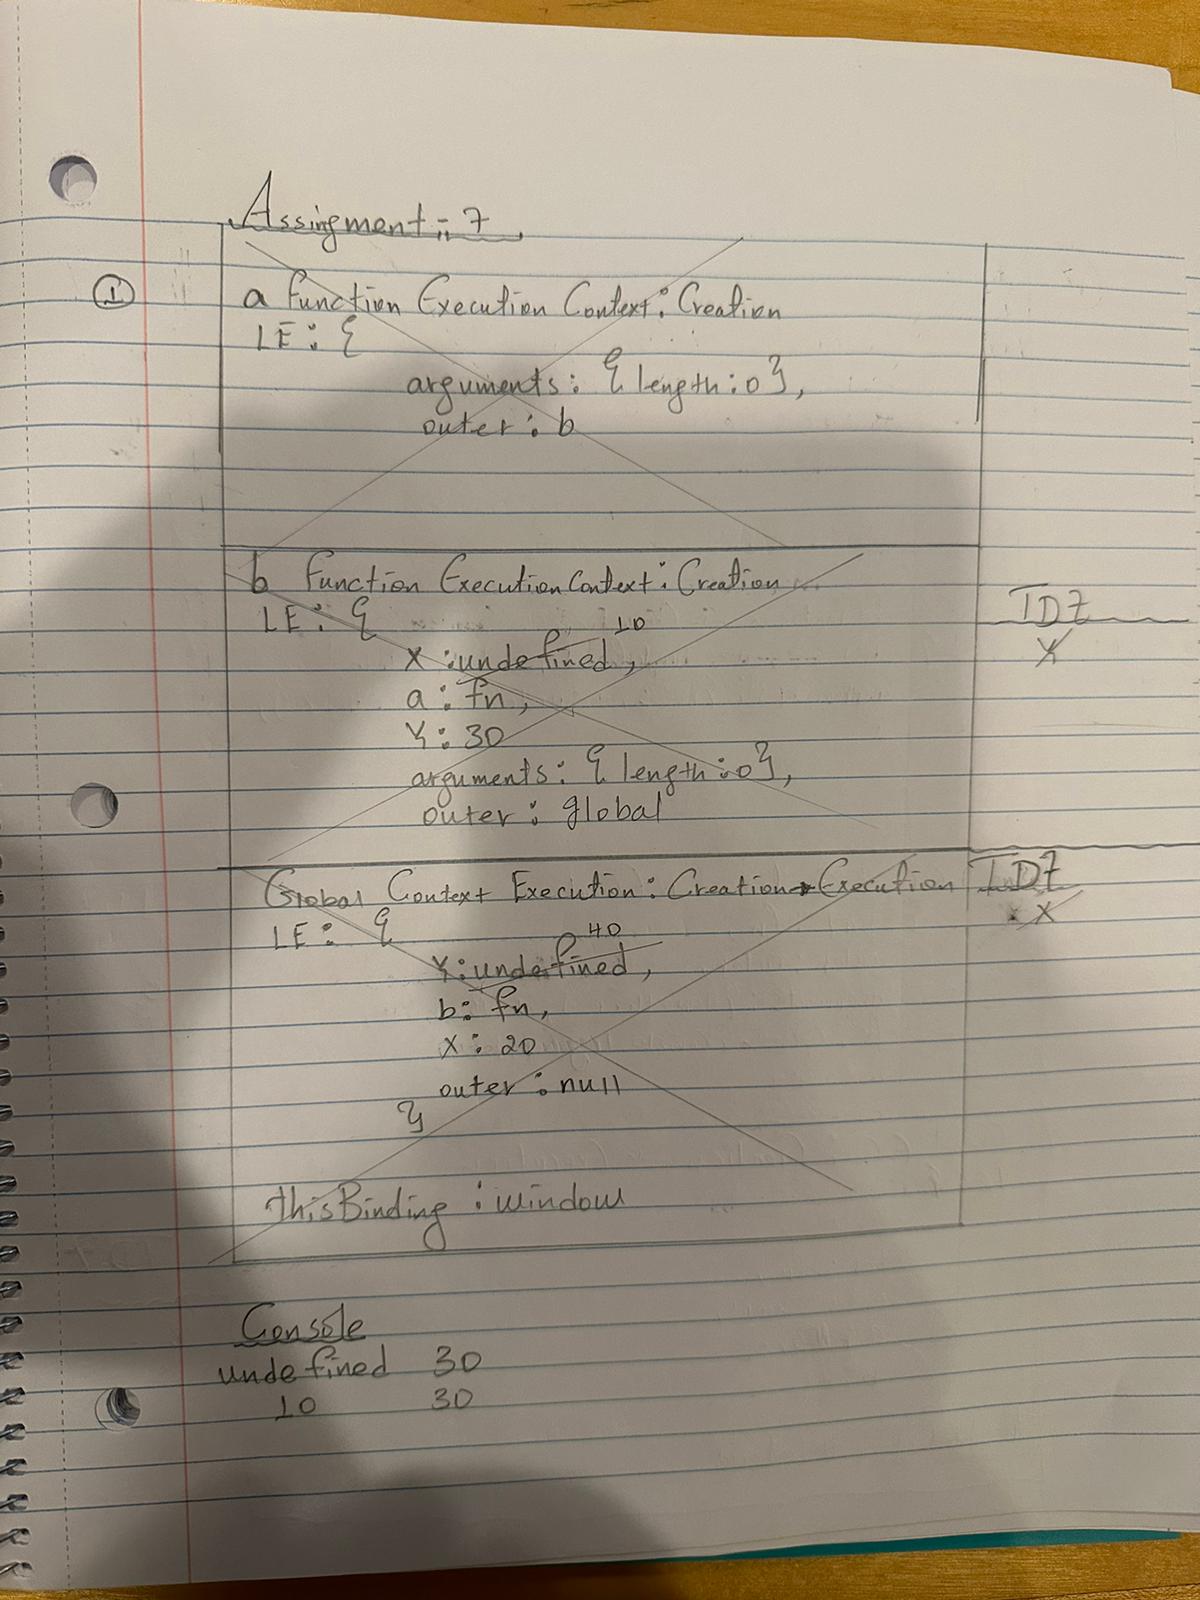 Assingment: 7
1
a Function Execution Context: Creation
LE: {
arguments: {length:0},
outer: b
b Function Execution Context: Creation
LE: {
10
X: undefined,
a: fn,
Y: 30
arguments: {length:0},
outer: global
TDZ
X
Global Context Execution: Creation→Execution
LE: {
40
Y: undefined,
b: fn,
X: 20
outer: null
}
thisBinding: window
TDZ
X
Console
undefined 30
10 30